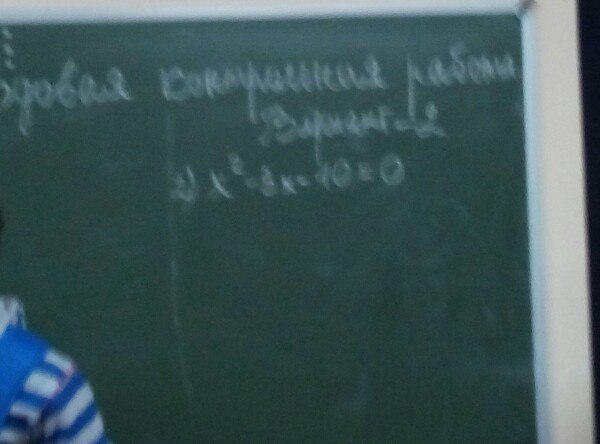 одовая контрольная работа
Вариант-2
x²-3x-10=0